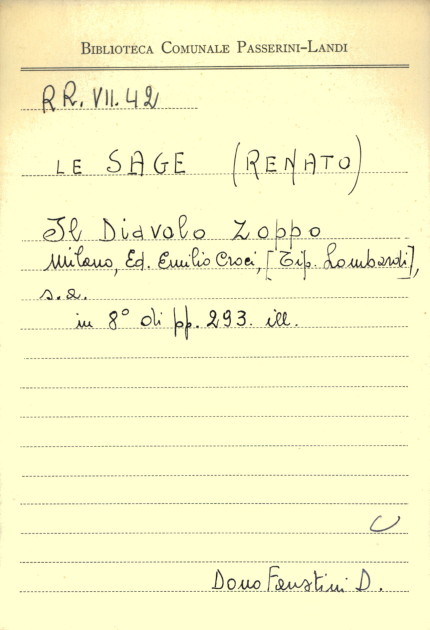 BIBLIOTECA COMUNALE PASSERINI-LANDI
RR. VII. 42
LE SAGE (RENATO)
Il Diavolo Zoppo
Milano, Ed. Emilio Croci, [Tip. Lombardi],
s.a.
in 8° di pp. 293. ill.
Dono Faustini D.